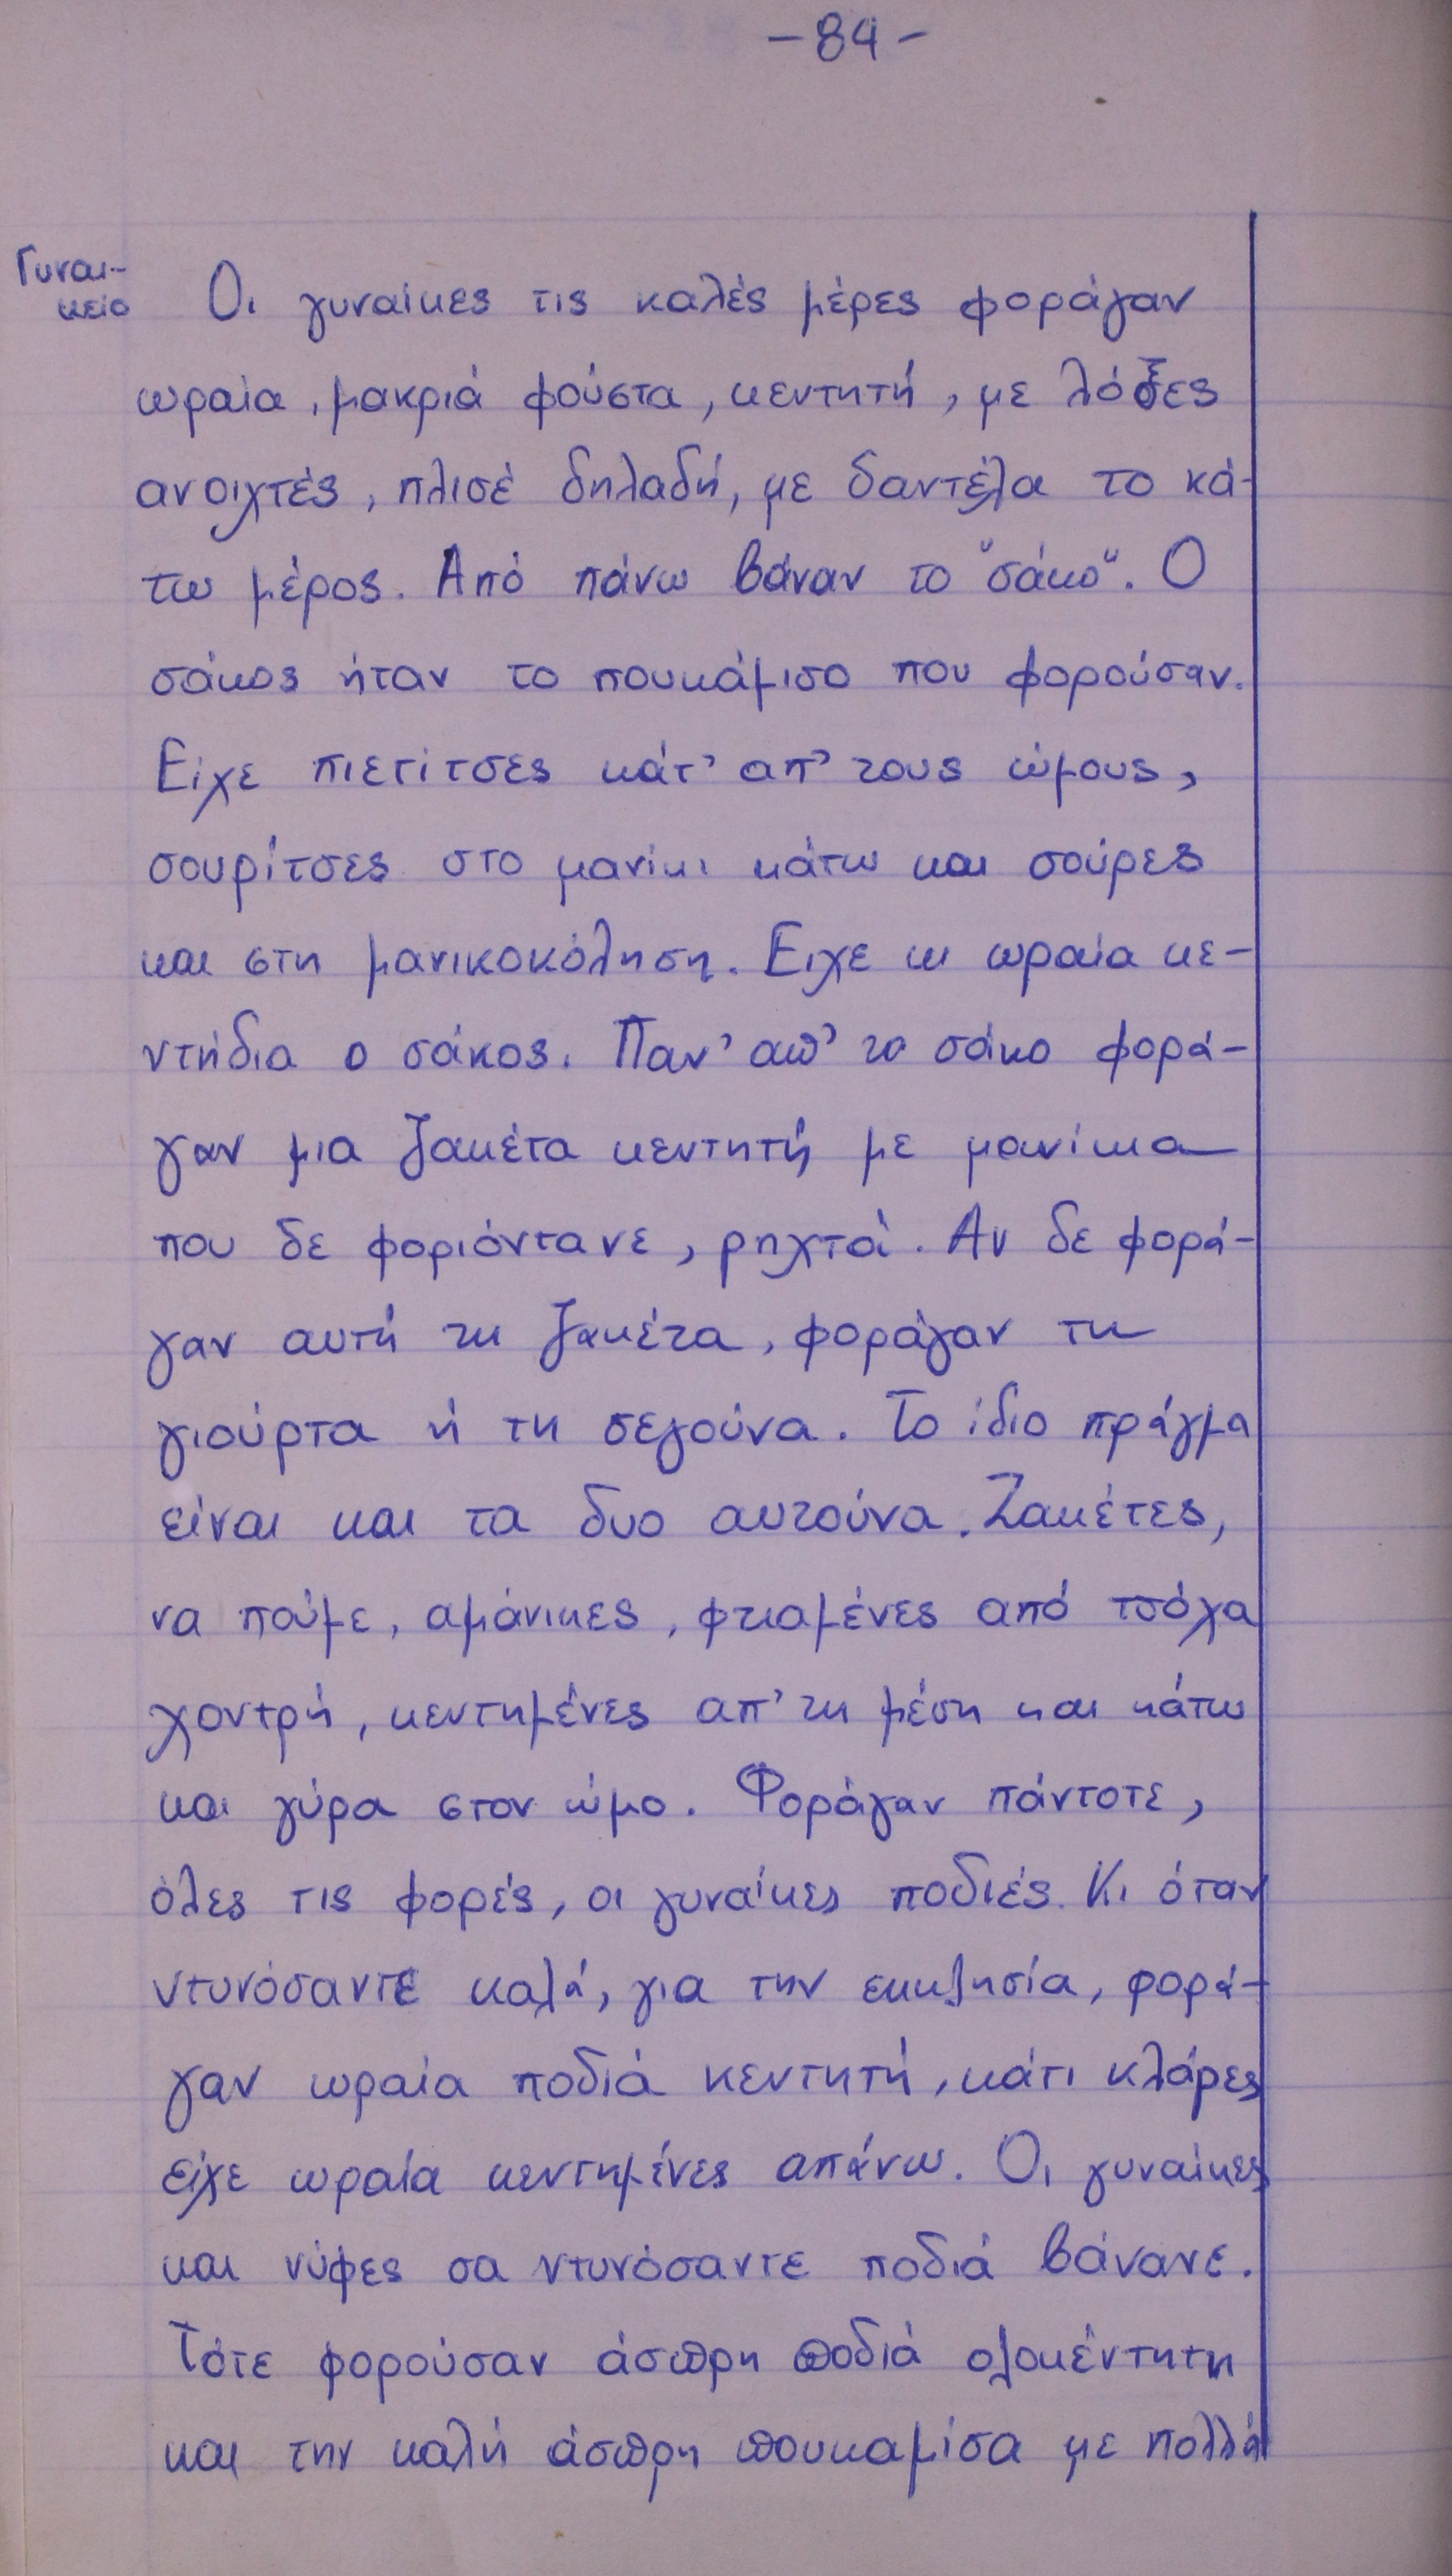 -84-
Γυναι-
κείο
Οι γυναίκες τις καλές μέρες φοράγαν
ωραία, μακριά φούστα, κεντητή, με λόξες
ανοιχτές, πλισέ δηλαδή, με δαντέλα το κά-
τω μέρος. Από πάνω βάναν το "σάκο". Ο
σάκος ήταν το πουκάμισο που φορούσαν.
Είχε πιετίτσες κάτ' απ' τους ώμους,
σουρίτσες στο μανίκι κάτω και σούρες
και στη μανικοκόληση. Ειχε κι ωραία κε-
ντήδια ο σάκος. Παν' απ' το σάκο φορά-
γαν μια ζακέτα κεντητή με μανίκια
που δε φοριόντανε, ρηχτά. Αν δε φορά-
γαν αυτή τη ζακέτα, φοράγαν τη
γιούρτα ή τη σεγούνα. Το ίδιο πράγμα
είναι και τα δυο αυτούνα. Ζακέτες,
να πούμε, αμάνικες, φτιαμένες από τσόχα
χοντρή, κεντημένες απ' τη μέση και κάτω
και γύρα στον ώμο. Φοράγαν πάντοτε,
όλες τις φορές, οι γυναίκες ποδιές. Κι όταν
ντυνόσαντε καλά, για την εκκλησία, φορά-
γαν ωραία ποδιά κεντητή, κάτι κλάρες
είχε ωραία κεντημένες απάνω. Οι γυναίκες
και νύφες σα ντυνόσαντε ποδιά βάνανε.
Τότε φορούσαν άσπρη ποδιά ολοκέντητη
και την καλή άσπρη πουκαμίσα με πολλά